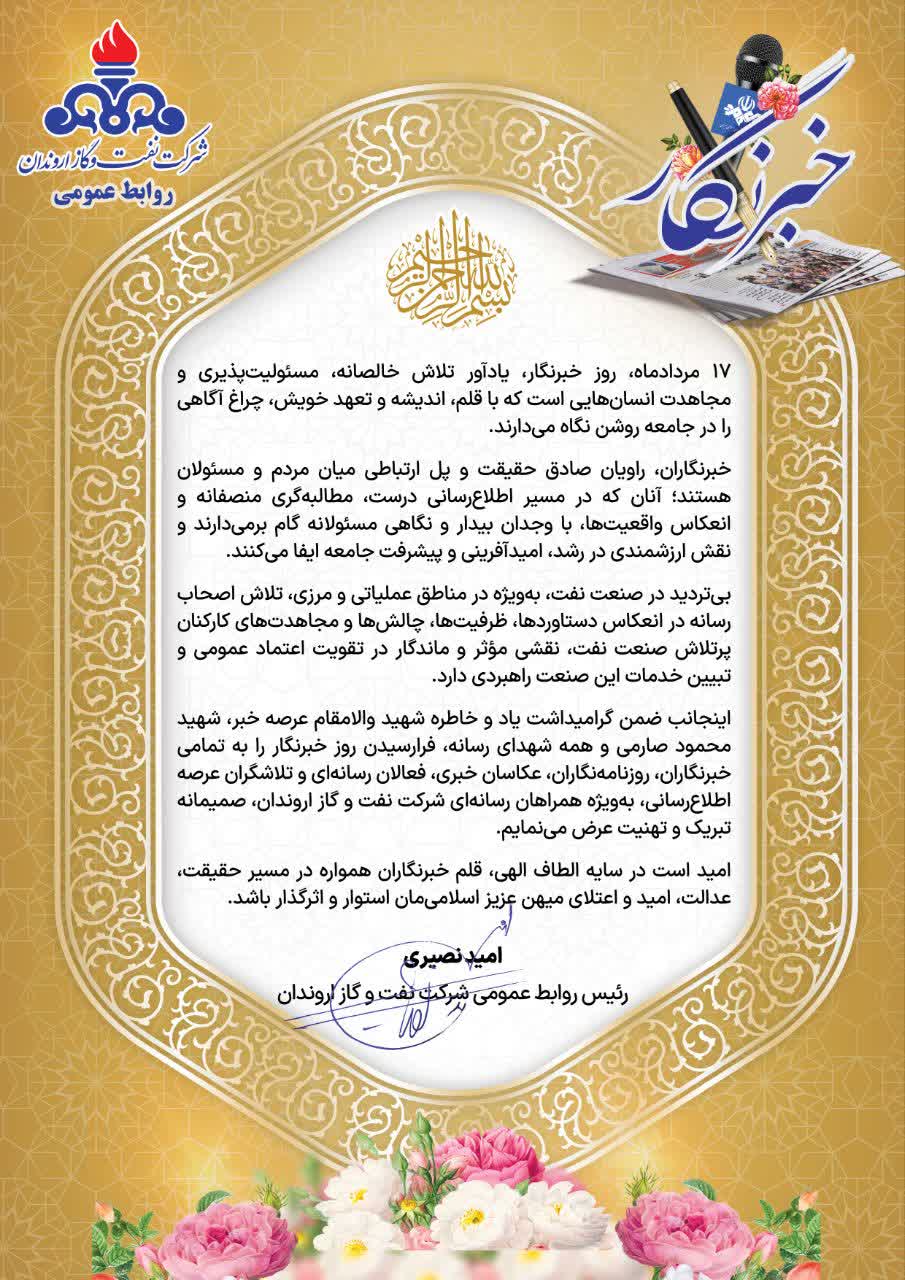 شرکت نفت و گاز اروندان
روابط عمومی
خبرنگار
بسم الله الرحمن الرحیم
۱۷ مردادماه، روز خبرنگار، یادآور تلاش خالصانه، مسئولیت‌پذیری و
مجاهدت انسان‌هایی است که با قلم، اندیشه و تعهد خویش، چراغ آگاهی
را در جامعه روشن نگاه می‌دارند.
خبرنگاران، راویان صادق حقیقت و پل ارتباطی میان مردم و مسئولان
هستند؛ آنان که در مسیر اطلاع‌رسانی درست، مطالبه‌گری منصفانه و
انعکاس واقعیت‌ها، با وجدان بیدار و نگاهی مسئولانه گام برمی‌دارند و
نقش ارزشمندی در رشد، امیدآفرینی و پیشرفت جامعه ایفا می‌کنند.
بی‌تردید در صنعت نفت، به‌ویژه در مناطق عملیاتی و مرزی، تلاش اصحاب
رسانه در انعکاس دستاوردها، ظرفیت‌ها، چالش‌ها و مجاهدت‌های کارکنان
پرتلاش صنعت نفت، نقشی مؤثر و ماندگار در تقویت اعتماد عمومی و
تبیین خدمات این صنعت راهبردی دارد.
اینجانب ضمن گرامیداشت یاد و خاطره شهید والامقام عرصه خبر، شهید
محمود صارمی و همه شهدای رسانه، فرارسیدن روز خبرنگار را به تمامی
خبرنگاران، روزنامه‌نگاران، عکاسان خبری، فعالان رسانه‌ای و تلاشگران عرصه
اطلاع‌رسانی، به‌ویژه همراهان رسانه‌ای شرکت نفت و گاز اروندان، صمیمانه
تبریک و تهنیت عرض می‌نمایم.
امید است در سایه الطاف الهی، قلم خبرنگاران همواره در مسیر حقیقت،
عدالت، امید و اعتلای میهن عزیز اسلامی‌مان استوار و اثرگذار باشد.
امید نصیری
رئیس روابط عمومی شرکت نفت و گاز اروندان